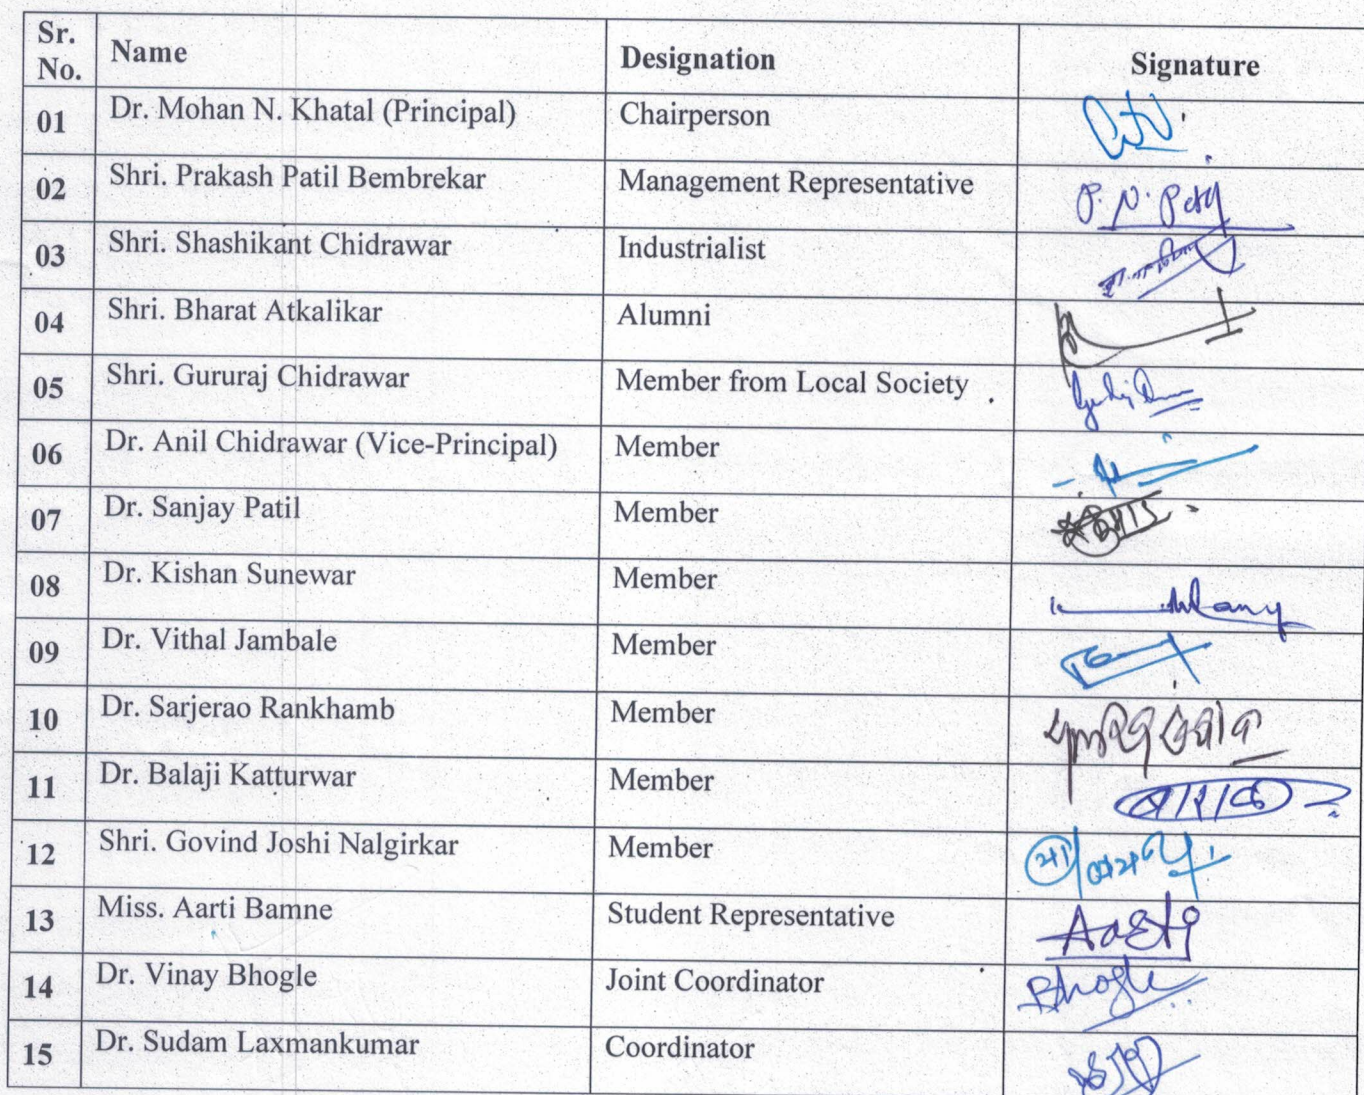 Sr. No. Name Designation Signature
01 Dr. Mohan N. Khatal (Principal) Chairperson
02 Shri. Prakash Patil Bembrekar Management Representative P. N. Patil
03 Shri. Shashikant Chidrawar Industrialist
04 Shri. Bharat Atkalikar Alumni
05 Shri. Gururaj Chidrawar Member from Local Society
06 Dr. Anil Chidrawar (Vice-Principal) Member
07 Dr. Sanjay Patil Member
08 Dr. Kishan Sunewar Member
09 Dr. Vithal Jambale Member
10 Dr. Sarjerao Rankhamb Member
11 Dr. Balaji Katturwar Member
12 Shri. Govind Joshi Nalgirkar Member
13 Miss. Aarti Bamne Student Representative Aarti
14 Dr. Vinay Bhogle Joint Coordinator Bhogle
15 Dr. Sudam Laxmankumar Coordinator